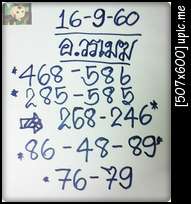 16-9-60
อ.วรเมฆ
*468-586
*285-585
⇨ 268-246*
*86-48-89*
*76-79
[507x600] upic.me